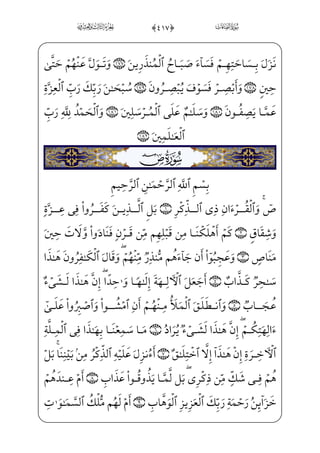 ﴿٤١٧﴾
نَزَلَ بِسَاحَتِهِمْ فَسَآءَ صَبَاحُ الْمُنْذَرِينَ ۝١٧٧ وَتَوَلَّ عَنْهُمْ حَتّٰى
حِينٍ ۝١٧٨ وَأَبْصِرْ فَسَوْفَ يُبْصِرُونَ ۝١٧٩ سُبْحٰنَ رَبِّكَ رَبِّ الْعِزَّةِ
عَمَّا يَصِفُونَ ۝١٨٠ وَسَلٰمٌ عَلَى الْمُرْسَلِينَ ۝١٨١ وَالْحَمْدُ لِلّٰهِ رَبِّ
الْعٰلَمِينَ ۝١٨٢
سُورَةُ صٓ
بِسْمِ اللّٰهِ الرَّحْمٰنِ الرَّحِيمِ
صٓ ۚ وَالْقُرْءَانِ ذِى الذِّكْرِ ۝١ بَلِ الَّذِينَ كَفَرُوا۟ فِى عِزَّةٍ
وَشِقَاقٍ ۝٢ كَمْ أَهْلَكْنَا مِن قَبْلِهِم مِّن قَرْنٍ فَنَادَوا۟ وَّلَاتَ حِينَ
مَنَاصٍ ۝٣ وَعَجِبُوٓا۟ أَن جَآءَهُم مُّنذِرٌ مِّنْهُمْ ۖ وَقَالَ الْكٰفِرُونَ هٰذَا
سٰحِرٌ كَذَّابٌ ۝٤ أَجَعَلَ الْءَالِهَةَ إِلٰهًا وٰحِدًا ۖ إِنَّ هٰذَا لَشَىْءٌ
عُجَابٌ ۝٥ وَانطَلَقَ الْمَلَأُ مِنْهُمْ أَنِ امْشُوا۟ وَاصْبِرُوا۟ عَلٰٓى
ءَالِهَتِكُمْ ۖ إِنَّ هٰذَا لَشَىْءٌ يُرَادُ ۝٦ مَا سَمِعْنَا بِهٰذَا فِى الْمِلَّةِ
الْءَاخِرَةِ إِنْ هٰذَآ إِلَّا اخْتِلٰقٌ ۝٧ أَءُنزِلَ عَلَيْهِ الذِّكْرُ مِنۢ بَيْنِنَا ۚ بَلْ
هُمْ فِى شَكٍّ مِّن ذِكْرِى ۖ بَل لَّمَّا يَذُوقُوا۟ عَذَابِ ۝٨ أَمْ عِندَهُمْ
خَزَآئِنُ رَحْمَةِ رَبِّكَ الْعَزِيزِ الْوَهَّابِ ۝٩ أَمْ لَهُم مُّلْكُ السَّمٰوٰتِ